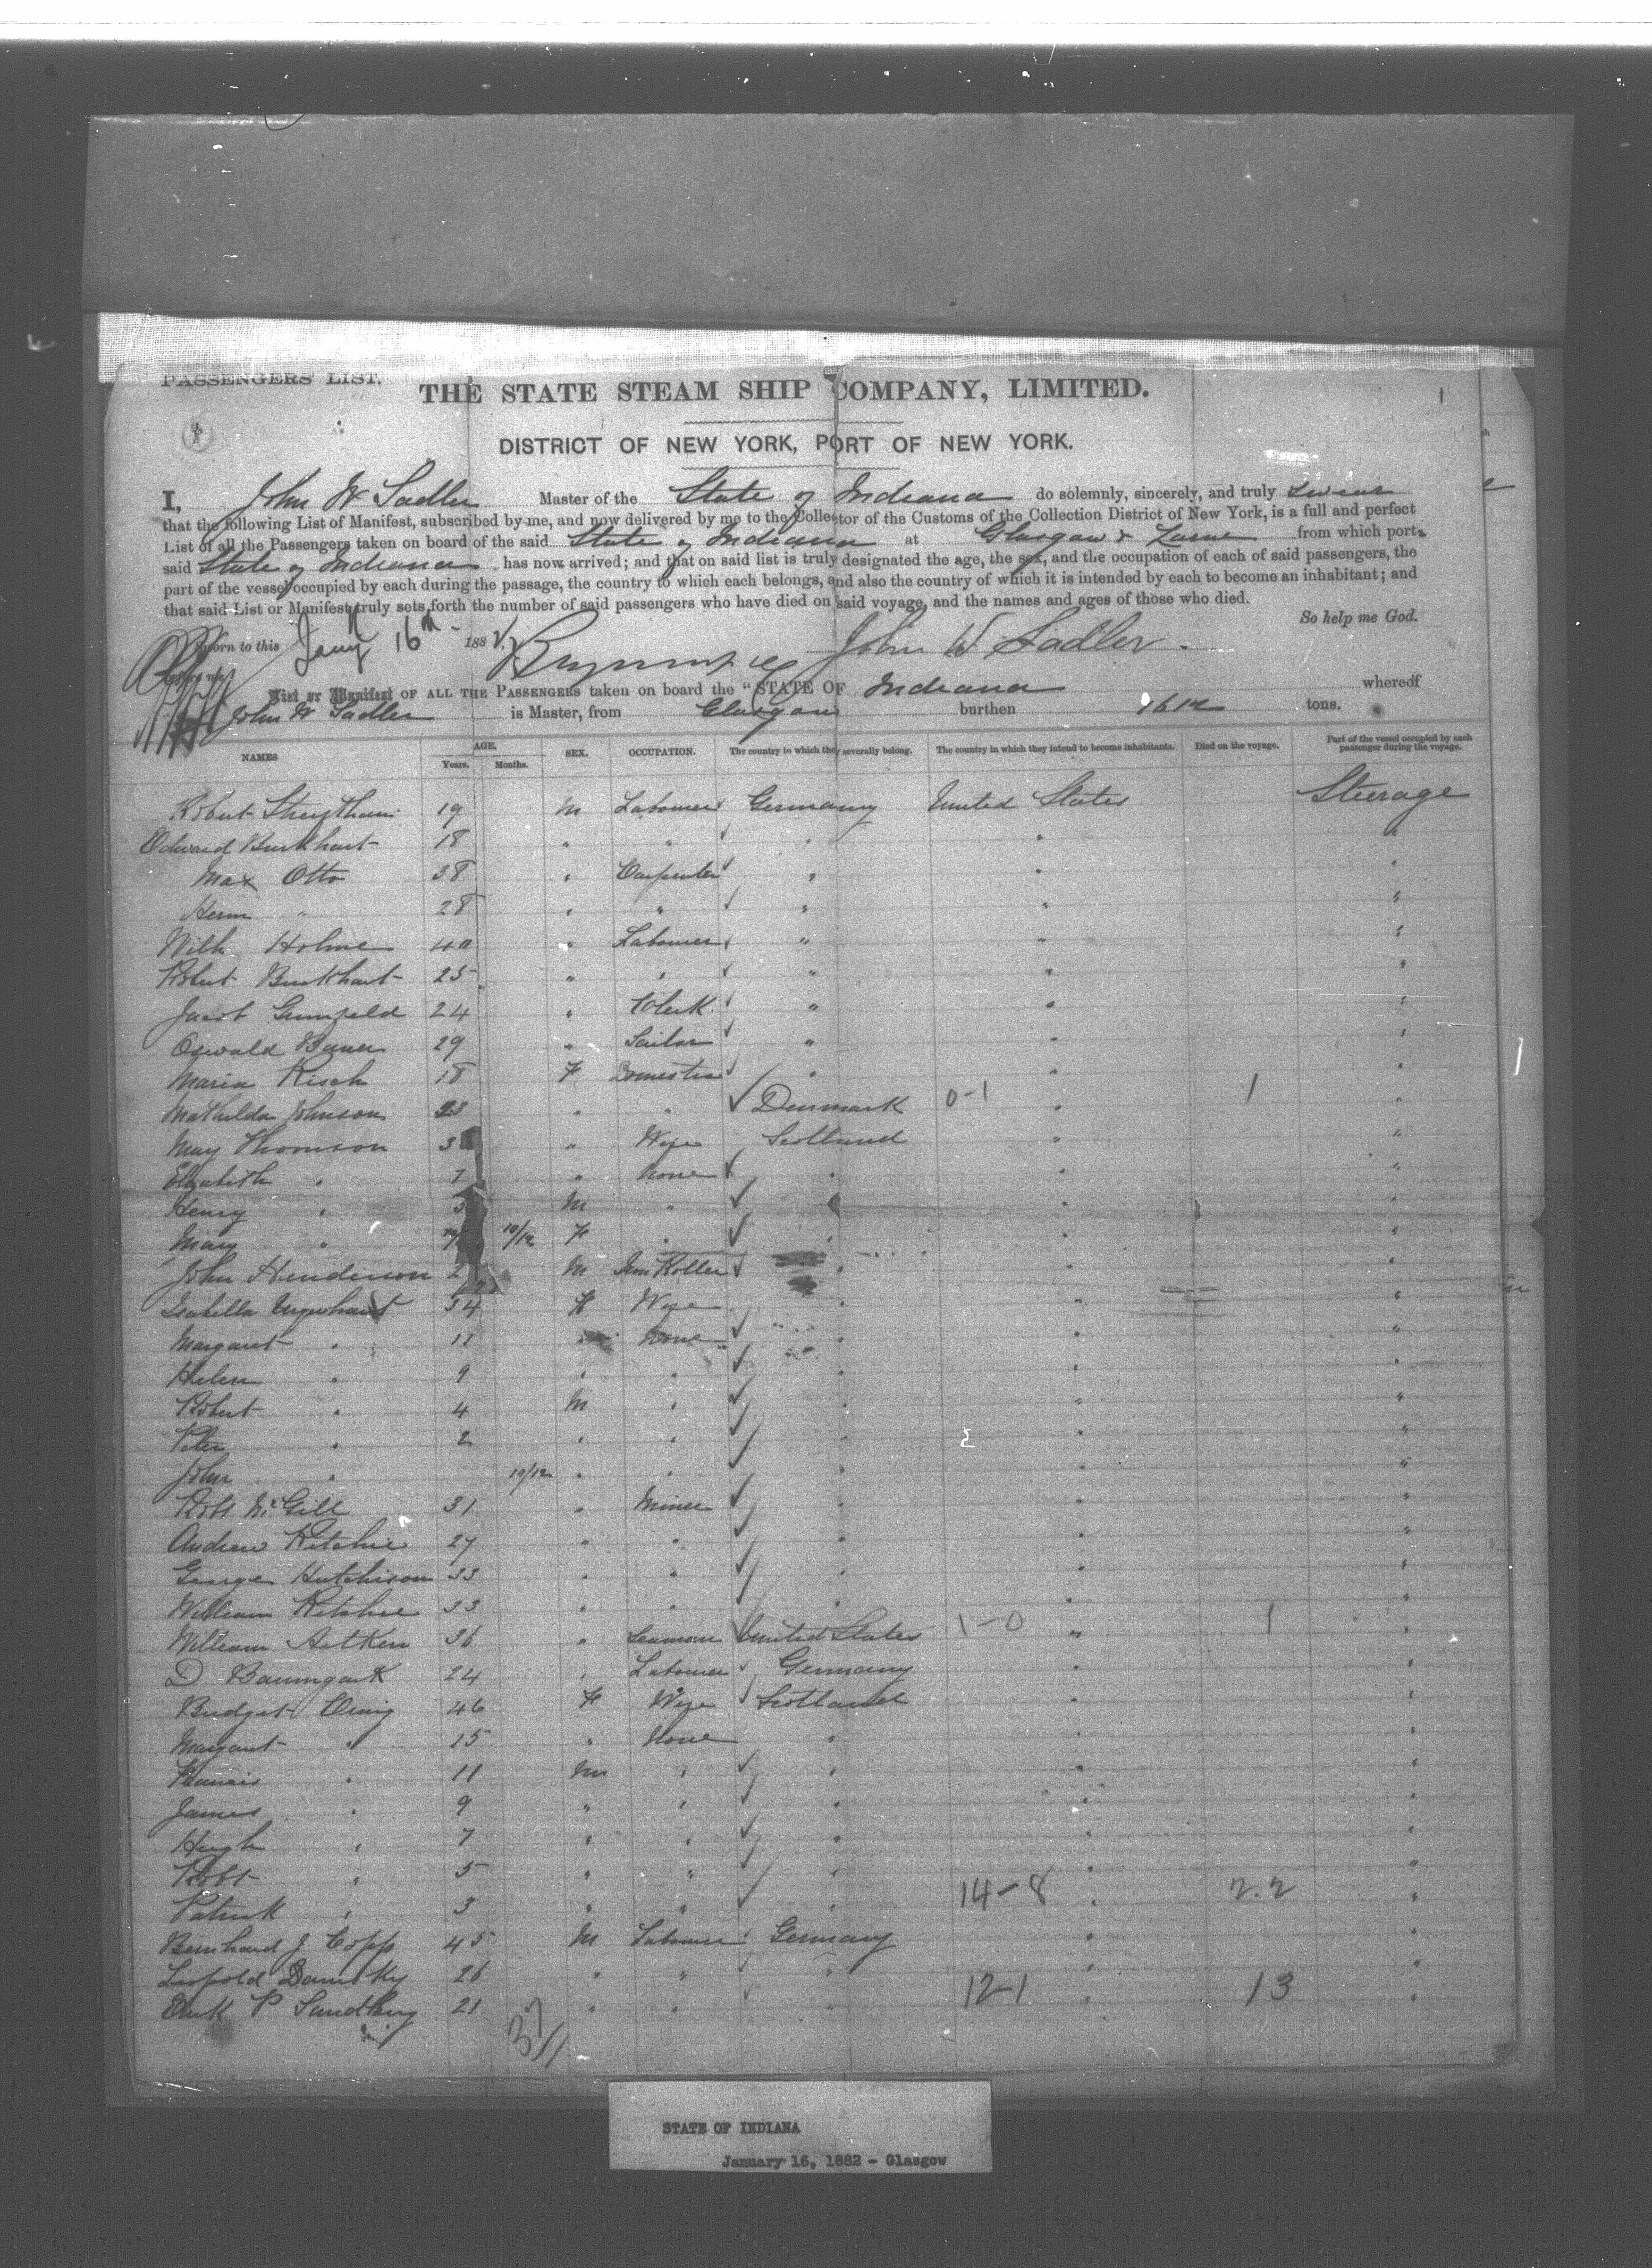 PASSENGERS' LIST.
THE STATE STEAM SHIP COMPANY, LIMITED.
1
DISTRICT OF NEW YORK, PORT OF NEW YORK.
I, John W Sadler Master of the State of Indiana do solemnly, sincerely, and truly swear
that the following List of Manifest, subscribed by me, and now delivered by me to the Collector of the Customs of the Collection District of New York, is a full and perfect
List of all the Passengers taken on board of the said State of Indiana at Glasgow & Larne from which ports
said State of Indiana has now arrived; and that on said list is truly designated the age, the sex, and the occupation of each of said passengers, the
part of the vessel occupied by each during the passage, the country to which each belongs, and also the country of which it is intended by each to become an inhabitant; and
that said List or Manifest truly sets forth the number of said passengers who have died on said voyage, and the names and ages of those who died.
So help me God.
Sworn to this Jany 16th 1882 John W Sadler.
before me
List or Manifest OF ALL THE PASSENGERS taken on board the "STATE OF Indiana whereof
John W Sadler is Master, from Glasgow burthen 1612 tons.
NAMES AGE. Years. Months. SEX. OCCUPATION. The country to which they severally belong. The country in which they intend to become inhabitants. Died on the voyage. Part of the vessel occupied by each passenger during the voyage.
Robert 19 M Labourer Germany United States Steerage
Edward Burkhart 18 " " " " "
Max Otto 38 " Carpenter " " "
Herm " 28 " " " " "
Wilh Holme 40 " Labourer " " "
Robert Burkhart 25 " " " " "
Jacob Gumpeld 24 " Clerk " " "
Oswald Bauer 29 " Sailor " " "
Maria Risch 18 F Domestic " " "
Mathilda Johnson 23 " " Denmark 0-1 " 1 "
May Thomson 3 " Wife Scotland " "
Elizabeth " 7 " None " " "
Henry " 3 M " " " "
Mary " 10/12 F " " " "
John Henderson 2 M Iron Roller " " "
Isabella Urquhart 34 F Wife " " "
Margaret " 11 " None " " "
Helen " 9 " " " " "
Robert " 4 M " " " "
Peter " 2 " " " " "
John " 10/12 " " " " "
Robt McGill 31 " Miner " " "
Andrew Ritchie 27 " " " " "
George Hutchison 33 " " " " "
William Ritchie 33 " " " " "
William Aitken 36 " Seaman United States 1-0 " 1 "
D Baumgark 24 " Labourer Germany " "
Bridget Craig 46 F Wife Scotland " "
Margaret " 15 " None " " "
Francis " 11 M " " " "
James " 9 " " " " "
Hugh " 7 " " " " "
Robt " 5 " " " " "
Patrick " 3 " " " 14-8 " 2.2 "
Bernhard J Copp 45 M Labourer Germany " "
Leopold Damsky 26 " " " " "
P Sandberg 21 " " " 12-1 " 13 "
37
STATE OF INDIANA
January 16, 1882 - Glasgow